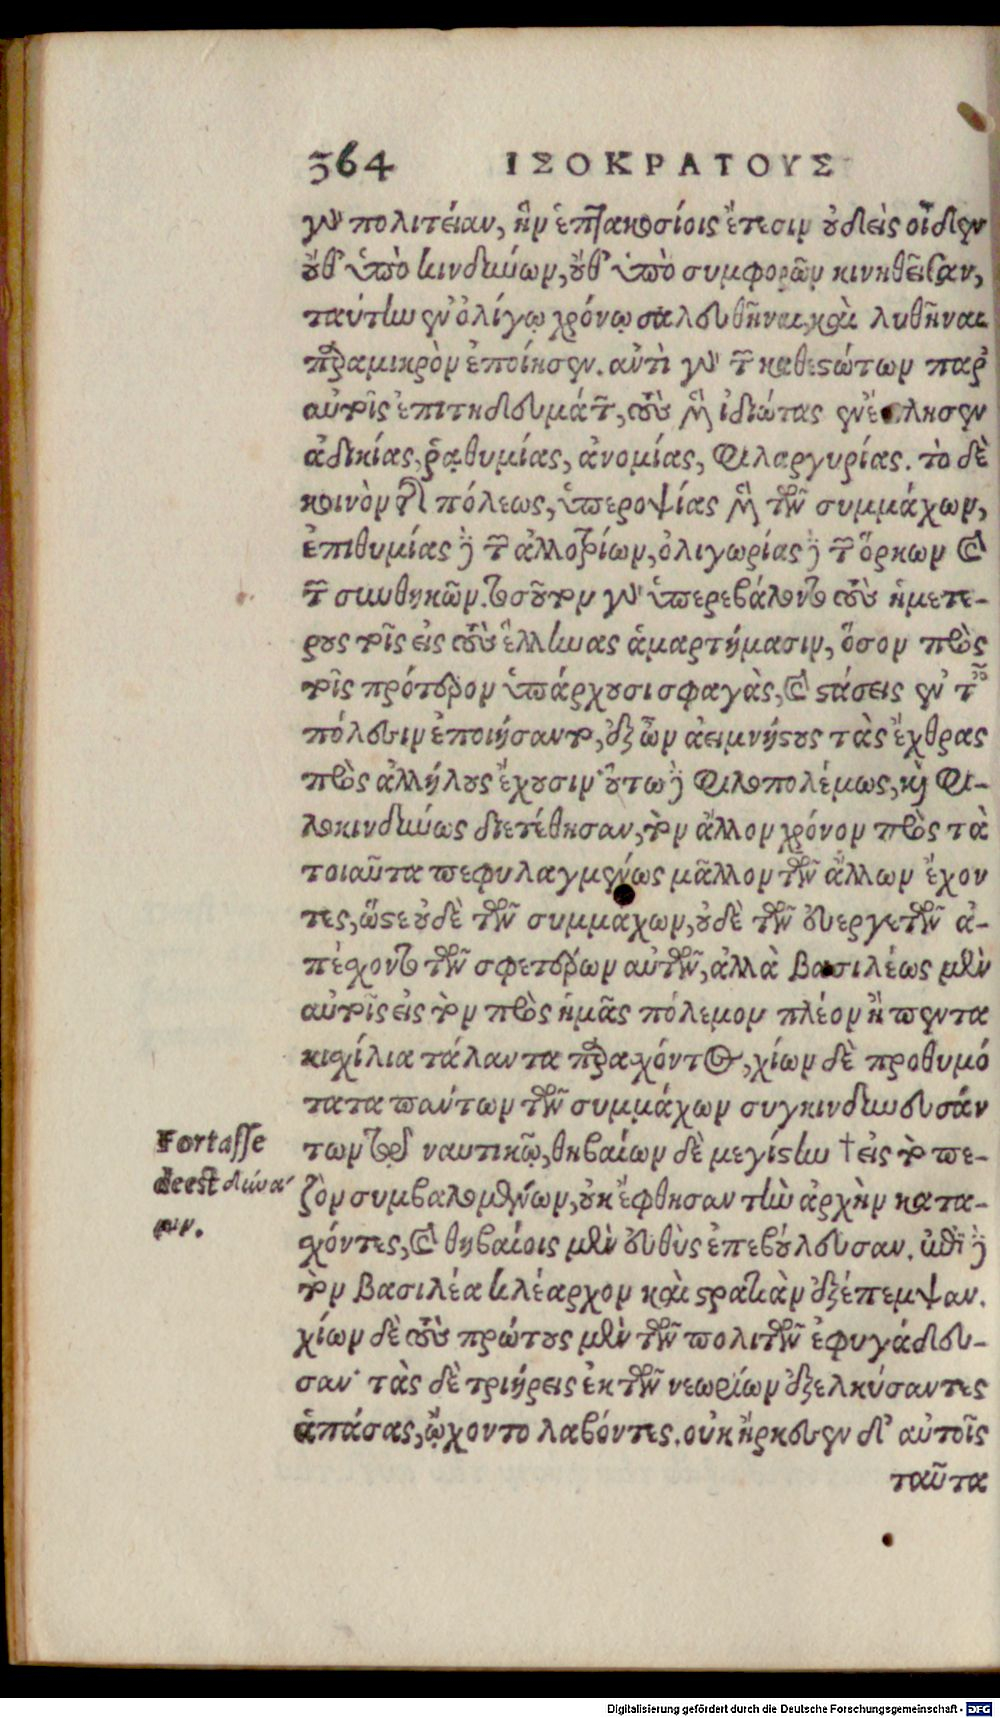 364 ΙΣΟΚΡΑΤΟΥΣ
γὰρ πολιτείαν, ἣν ἑπτακοσίοις ἔτεσιν οὐδεὶς οἶδεν
οὔθ' ὑπὸ κινδύνων, οὔθ' ὑπὸ συμφορῶν κινηθεῖσαν,
ταύτην ἐν ὀλίγῳ χρόνῳ σαλευθῆναι, καὶ λυθῆναι
παραμικρὸν ἐποίησεν. ἀντὶ γὰρ τῶν καθεστώτων παρ'
αὐτοῖς ἐπιτηδευμάτων, τοὺς μὲν ἰδιώτας ἐνέπλησεν
ἀδικίας, ῥᾳθυμίας, ἀνομίας, φιλαργυρίας. τὸ δὲ
κοινὸν τῆς πόλεως, ὑπεροψίας μὲν τῶν συμμάχων,
ἐπιθυμίας δὲ τῶν ἀλλοτρίων, ὀλιγωρίας δὲ τῶν ὅρκων καὶ
τῶν συνθηκῶν. τοσοῦτον γὰρ ὑπερεβάλοντο τοὺς ἡμετέ-
ρους τοῖς εἰς τοὺς ἕλληνας ἁμαρτήμασιν, ὅσον πρὸς
τοῖς πρότερον ὑπάρχουσι σφαγὰς, καὶ στάσεις ἐν ταῖς
πόλεσιν ἐποιήσαντο, ἐξ ὧν ἀειμνήστους τὰς ἔχθρας
πρὸς ἀλλήλους ἔχουσιν· οὕτω δὲ φιλοπολέμως, καὶ φι-
λοκινδύνως διετέθησαν, τὸν ἄλλον χρόνον πρὸς τὰ
τοιαῦτα πεφυλαγμένως μᾶλλον τῶν ἄλλων ἔχον
τες, ὥστε οὐδὲ τῶν συμμάχων, οὐδὲ τῶν εὐεργετῶν ἀ-
πέσχοντο τῶν σφετέρων αὐτῶν, ἀλλὰ βασιλέως μὲν
αὐτοῖς εἰς τὸν πρὸς ἡμᾶς πόλεμον πλέον ἢ πεντα
κισχίλια τάλαντα παρασχόντος, χίων δὲ προθυμό
τατα πάντων τῶν συμμάχων συγκινδυνευσάν
των τῷ ναυτικῷ, θηβαίων δὲ μεγίστην † εἰς τὸ πε-
ζὸν συμβαλομένων, οὐκ ἔφθησαν τὴν ἀρχὴν κατα-
σχόντες, καὶ θηβαίοις μὲν εὐθὺς ἐπεβούλευσαν. ἐπὶ δὲ
τὸν βασιλέα κλέαρχον καὶ στρατιὰν ἐξέπεμψαν.
χίων δὲ τοὺς πρώτους μὲν τῶν πολιτῶν ἐφυγάδευ-
σαν· τὰς δὲ τριήρεις ἐκ τῶν νεωρίων ἐξελκύσαντες
ἁπάσας, ᾤχοντο λαβόντες. οὐκ ἤρκεσεν δ' αὐτοῖς
ταῦτα
Fortasse
deest δύνα
μιν.
Digitalisierung gefördert durch die Deutsche Forschungsgemeinschaft - DFG